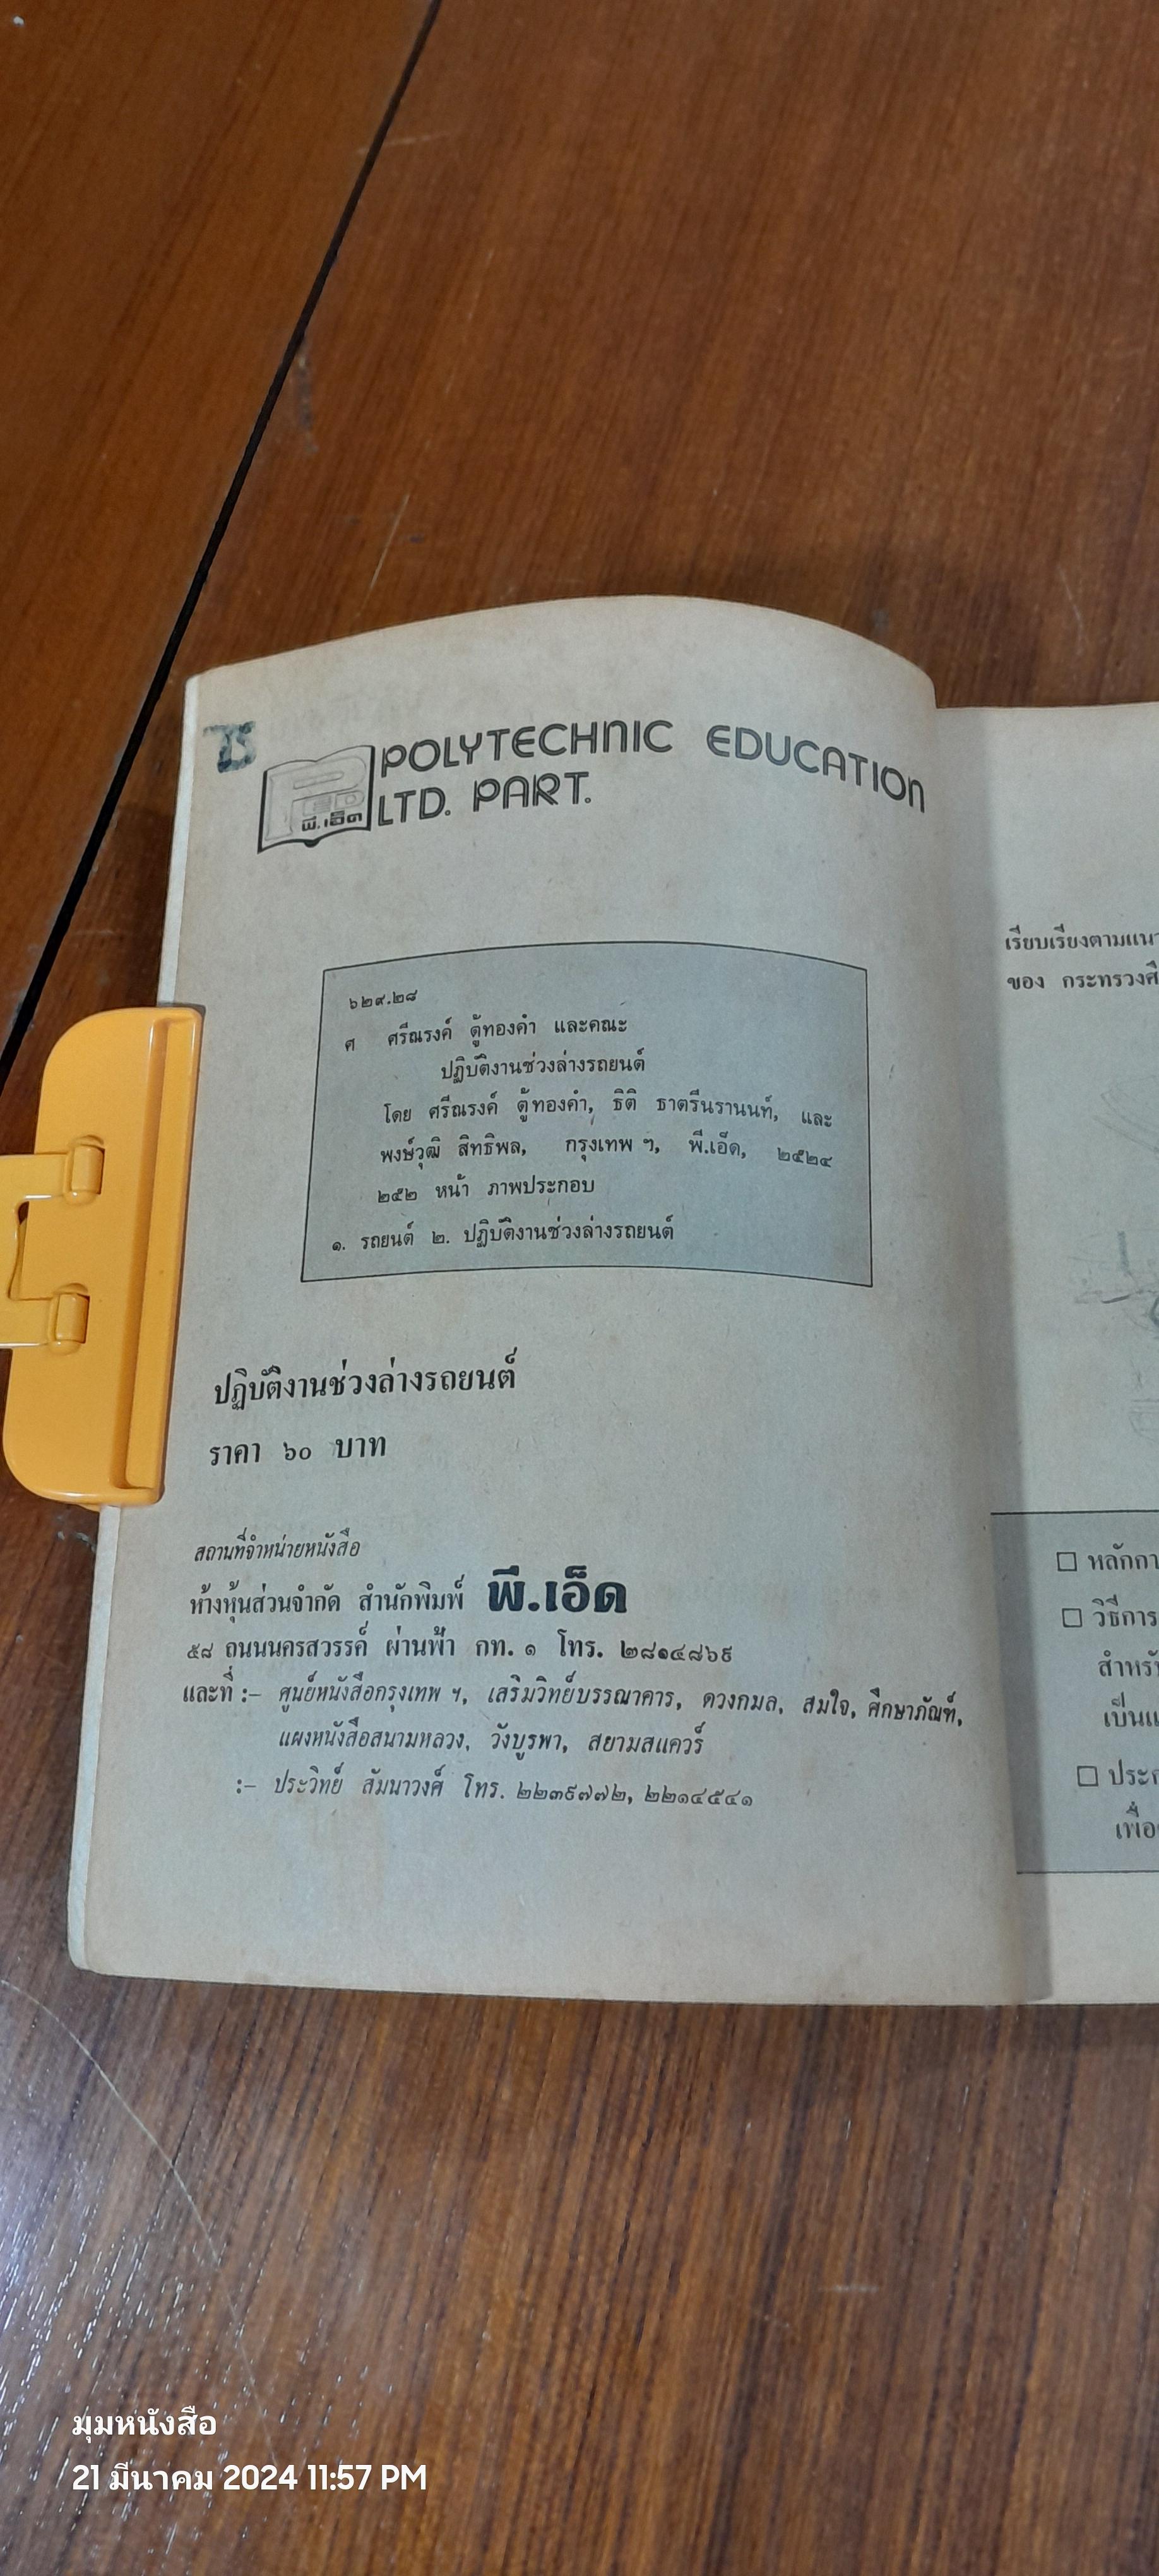 POLYTECHNIC EDUCATION
LTD. PART.
พี.เอ็ด
๖๒๙.๒๘
ศ ศรีณรงค์ ตู้ทองคำ และคณะ
ปฏิบัติงานช่วงล่างรถยนต์
โดย ศรีณรงค์ ตู้ทองคำ, ธิติ ธาตรีนรานนท์, และ
พงษ์วุฒิ สิทธิพล, กรุงเทพ ฯ, พี.เอ็ด, ๒๕๒๔
๒๕๒ หน้า ภาพประกอบ
๑. รถยนต์ ๒. ปฏิบัติงานช่วงล่างรถยนต์
ปฏิบัติงานช่วงล่างรถยนต์
ราคา ๖๐ บาท
สถานที่จำหน่ายหนังสือ
ห้างหุ้นส่วนจำกัด สำนักพิมพ์ พี.เอ็ด
๕๘ ถนนนครสวรรค์ ผ่านฟ้า กท. ๑ โทร. ๒๘๑๔๘๖๙
และที่ :– ศูนย์หนังสือกรุงเทพ ฯ, เสริมวิทย์บรรณาคาร, ดวงกมล, สมใจ, ศึกษาภัณฑ์,
แผงหนังสือสนามหลวง, วังบูรพา, สยามสแควร์
:– ประวิทย์ สัมนาวงศ์ โทร. ๒๒๓๙๗๗๒, ๒๒๑๔๕๔๑
เรียบเรียงตามแนว
ของ กระทรวงศึ
หลักกา
วิธีการ
สำหรั
เป็นแ
ประก
เพื่อ
มุมหนังสือ
21 มีนาคม 2024 11:57 PM